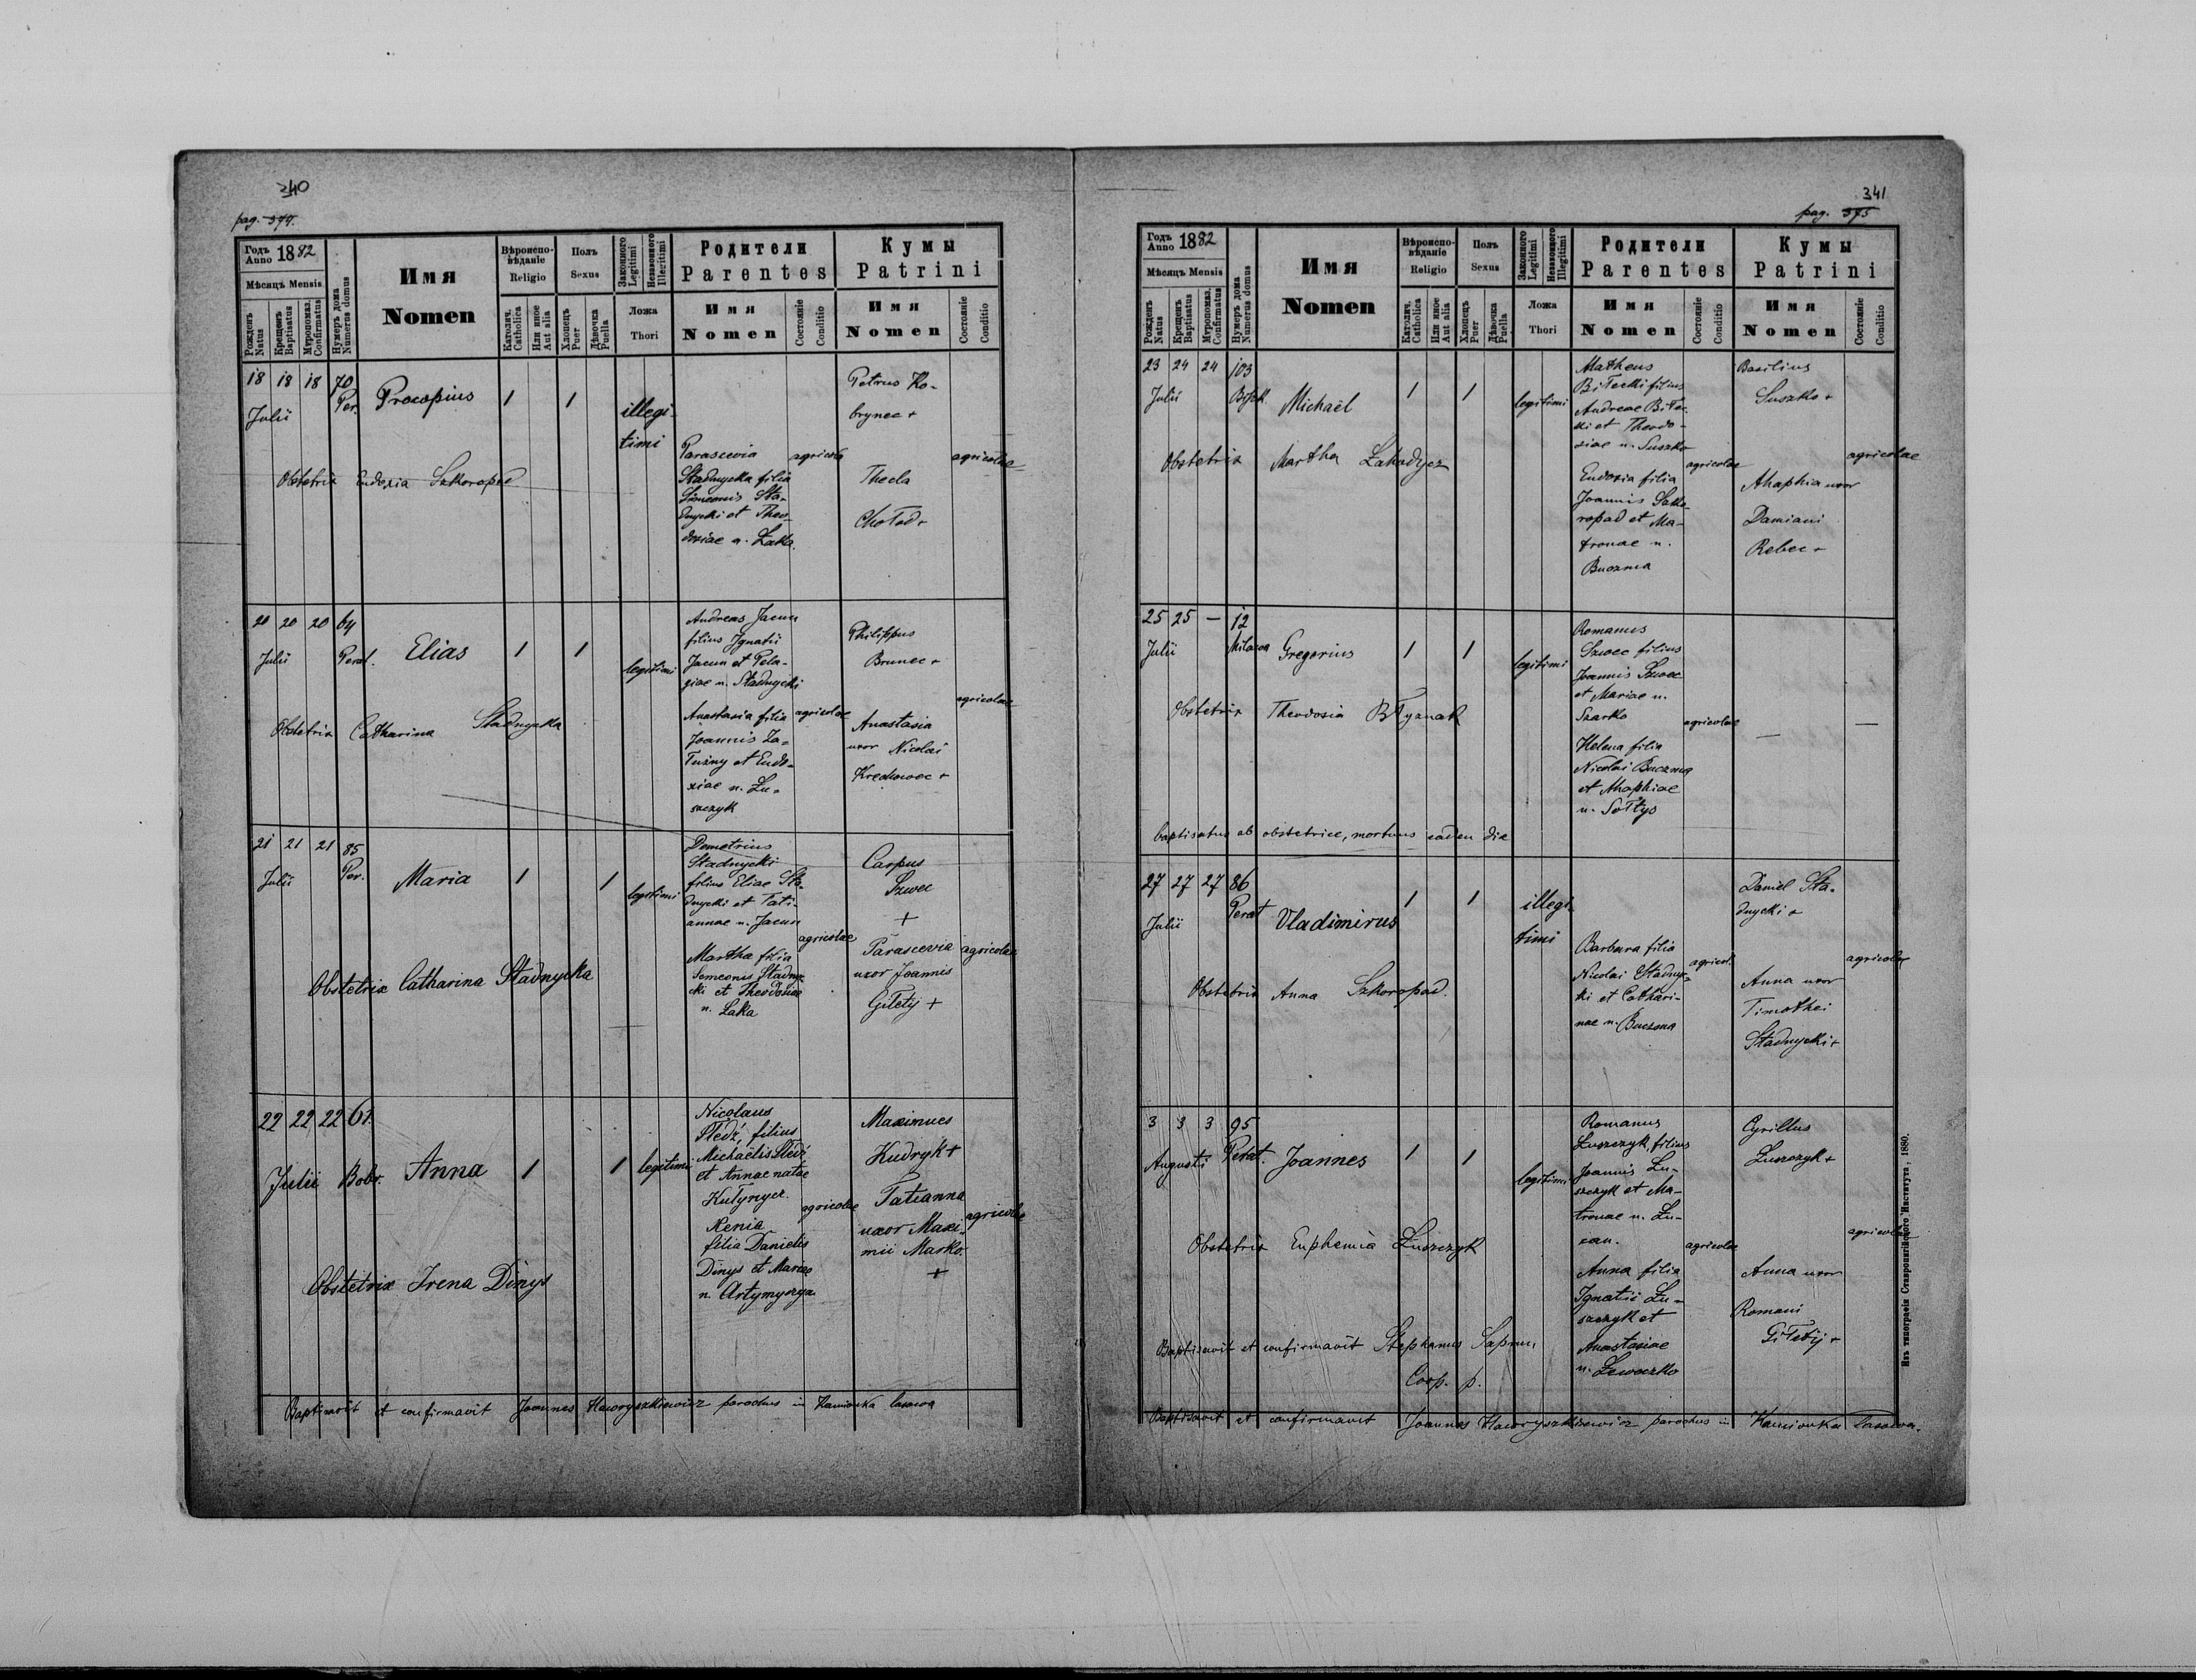 340
pag. 374.
Годъ Anno 1882
Мѣсяцъ Mensis
Рожденъ Natus
Крещенъ Baptisatus
Мѵропомаз. Confirmatus
Нумеръ дома Numerus domus
Имя
Nomen
Вѣроиспо-
вѣданіе
Religio
Католич. Catholica
Или иное Aut alia
Полъ
Sexus
Хлопецъ Puer
Дѣвочка Puella
Законного Legitimi
Незаконного Illegitimi
Ложа
Thori
Родители
Parentes
Имя
Nomen
Состояніе
Conditio
Кумы
Patrini
Имя
Nomen
Состояніе
Conditio
18 18 18 70
Julii Per.
Procopius
1 1
illegi-
timi
Parascevia
Stadnycka filia
Simeonis Sta-
dnycki et Theo-
dosiae n. Łaka
agricola
Petrus Ko-
brynec +
Thecla
Chołod +
agricolae
Obstetrix Eudoxia Szkoropad
20 20 20 64
Julii Perat.
Elias
1 1
legitimi
Andreas Jacun
filius Ignatii
Jacun et Pela-
giae n. Stadnycki
Anastasia filia
Joannis Za-
łużny et Eudo-
xiae n. Łu-
szczyk
agricolae
Philippus
Brunec +
Anastasia
uxor Nicolai
Krechowec +
agricolae
Obstetrix Catharina Stadnycka
21 21 21 85
Julii Per.
Maria
1 1
legitimi
Demetrius
Stadnycki
filius Eliae Sta-
dnycki et Tati-
annae n. Jacun
Martha filia
Semeonis Stadny-
cki et Theodosiae
n. Łaka
agricolae
Carpus
Szwec
+
Parascevia
uxor Joannis
Giłetij +
agricolae
Obstetrix Catharina Stadnycka
22 22 22 61
Julii Bobr.
Anna
1 1
legitimi
Nicolaus
Śledź, filius
Michaëlis Śledź
et Annae natae
Kułynycz.
Xenia
filia Danielis
Dinys et Mariae
n. Artymyszyn
agricolae
Maximus
Kudryk +
Tatianna
uxor Maxi-
mii Marko.
+
agricolae
Obstetrix Irena Dinys
Baptisavit et confirmavit Joannes Haworyszkiewicz parochus in Kamionka lasowa
341
pag. 375
Годъ Anno 1882
Мѣсяцъ Mensis
Рожденъ Natus
Крещенъ Baptisatus
Мѵропомаз. Confirmatus
Нумеръ дома Numerus domus
Имя
Nomen
Вѣроиспо-
вѣданіе
Religio
Католич. Catholica
Или иное Aut alia
Полъ
Sexus
Хлопецъ Puer
Дѣвочка Puella
Законного Legitimi
Незаконного Illegitimi
Ложа
Thori
Родители
Parentes
Имя
Nomen
Состояніе
Conditio
Кумы
Patrini
Имя
Nomen
Состояніе
Conditio
23 24 24 103
Julii
Michaël
1 1
legitimi
Matheus
Biłecki filius
Andreae Biłec-
ki et Theodo-
siae n. Suszko
Eudoxia filia
Joannis Szko-
ropad et Ma-
tronae n.
Buczma
agricolae
Basilius
Suszko +
Ahaphia uxor
Damiani
Rebec +
agricolae
Obstetrix Martha Zahadycz
25 25 — 12
Julii Milowa
Gregorius
1 1
legitimi
Romanus
Szwec filius
Joannis Szwec
et Mariae n.
Szarko
Helena filia
Nicolai Buczma
et Ahaphiae
n. Sołtys
agricolae
—
—
Obstetrix Theodosia Błyznak
baptisatus ab obstetrice, mortuus eadem die
27 27 27 86
Julii Perat
Vladimirus
1 1
illegi-
timi
Barbara filia
Nicolai Stadny-
cki et Cathari-
nae n. Buczma
agricol.
Daniel Sta-
dnycki +
Anna uxor
Timothei
Stadnycki +
agricolae
Obstetrix Anna Szkoropad.
3 3 3 95
Augusti Perat.
Joannes
1 1
legitimi
Romanus
Łuszczyk, filius
Joannis Łu-
szczyk et Ma-
tronae n. Łu-
can.
Anna filia
Ignatii Łu-
szczyk et
Anastasiae
n. Lewoczko
agricolae
Cyrillus
Łuszczyk +
Anna uxor
Romani
Giłetij +
agricolae
Obstetrix Euphemia Łuszczyk
Baptisavit et confirmavit Stephanus Saprun
Coop. p.
Baptisavit et confirmavit Joannes Haworyszkiewicz parochus in Kamionka lasowa.
Изъ типографіи Ставропигійского Института, 1880.